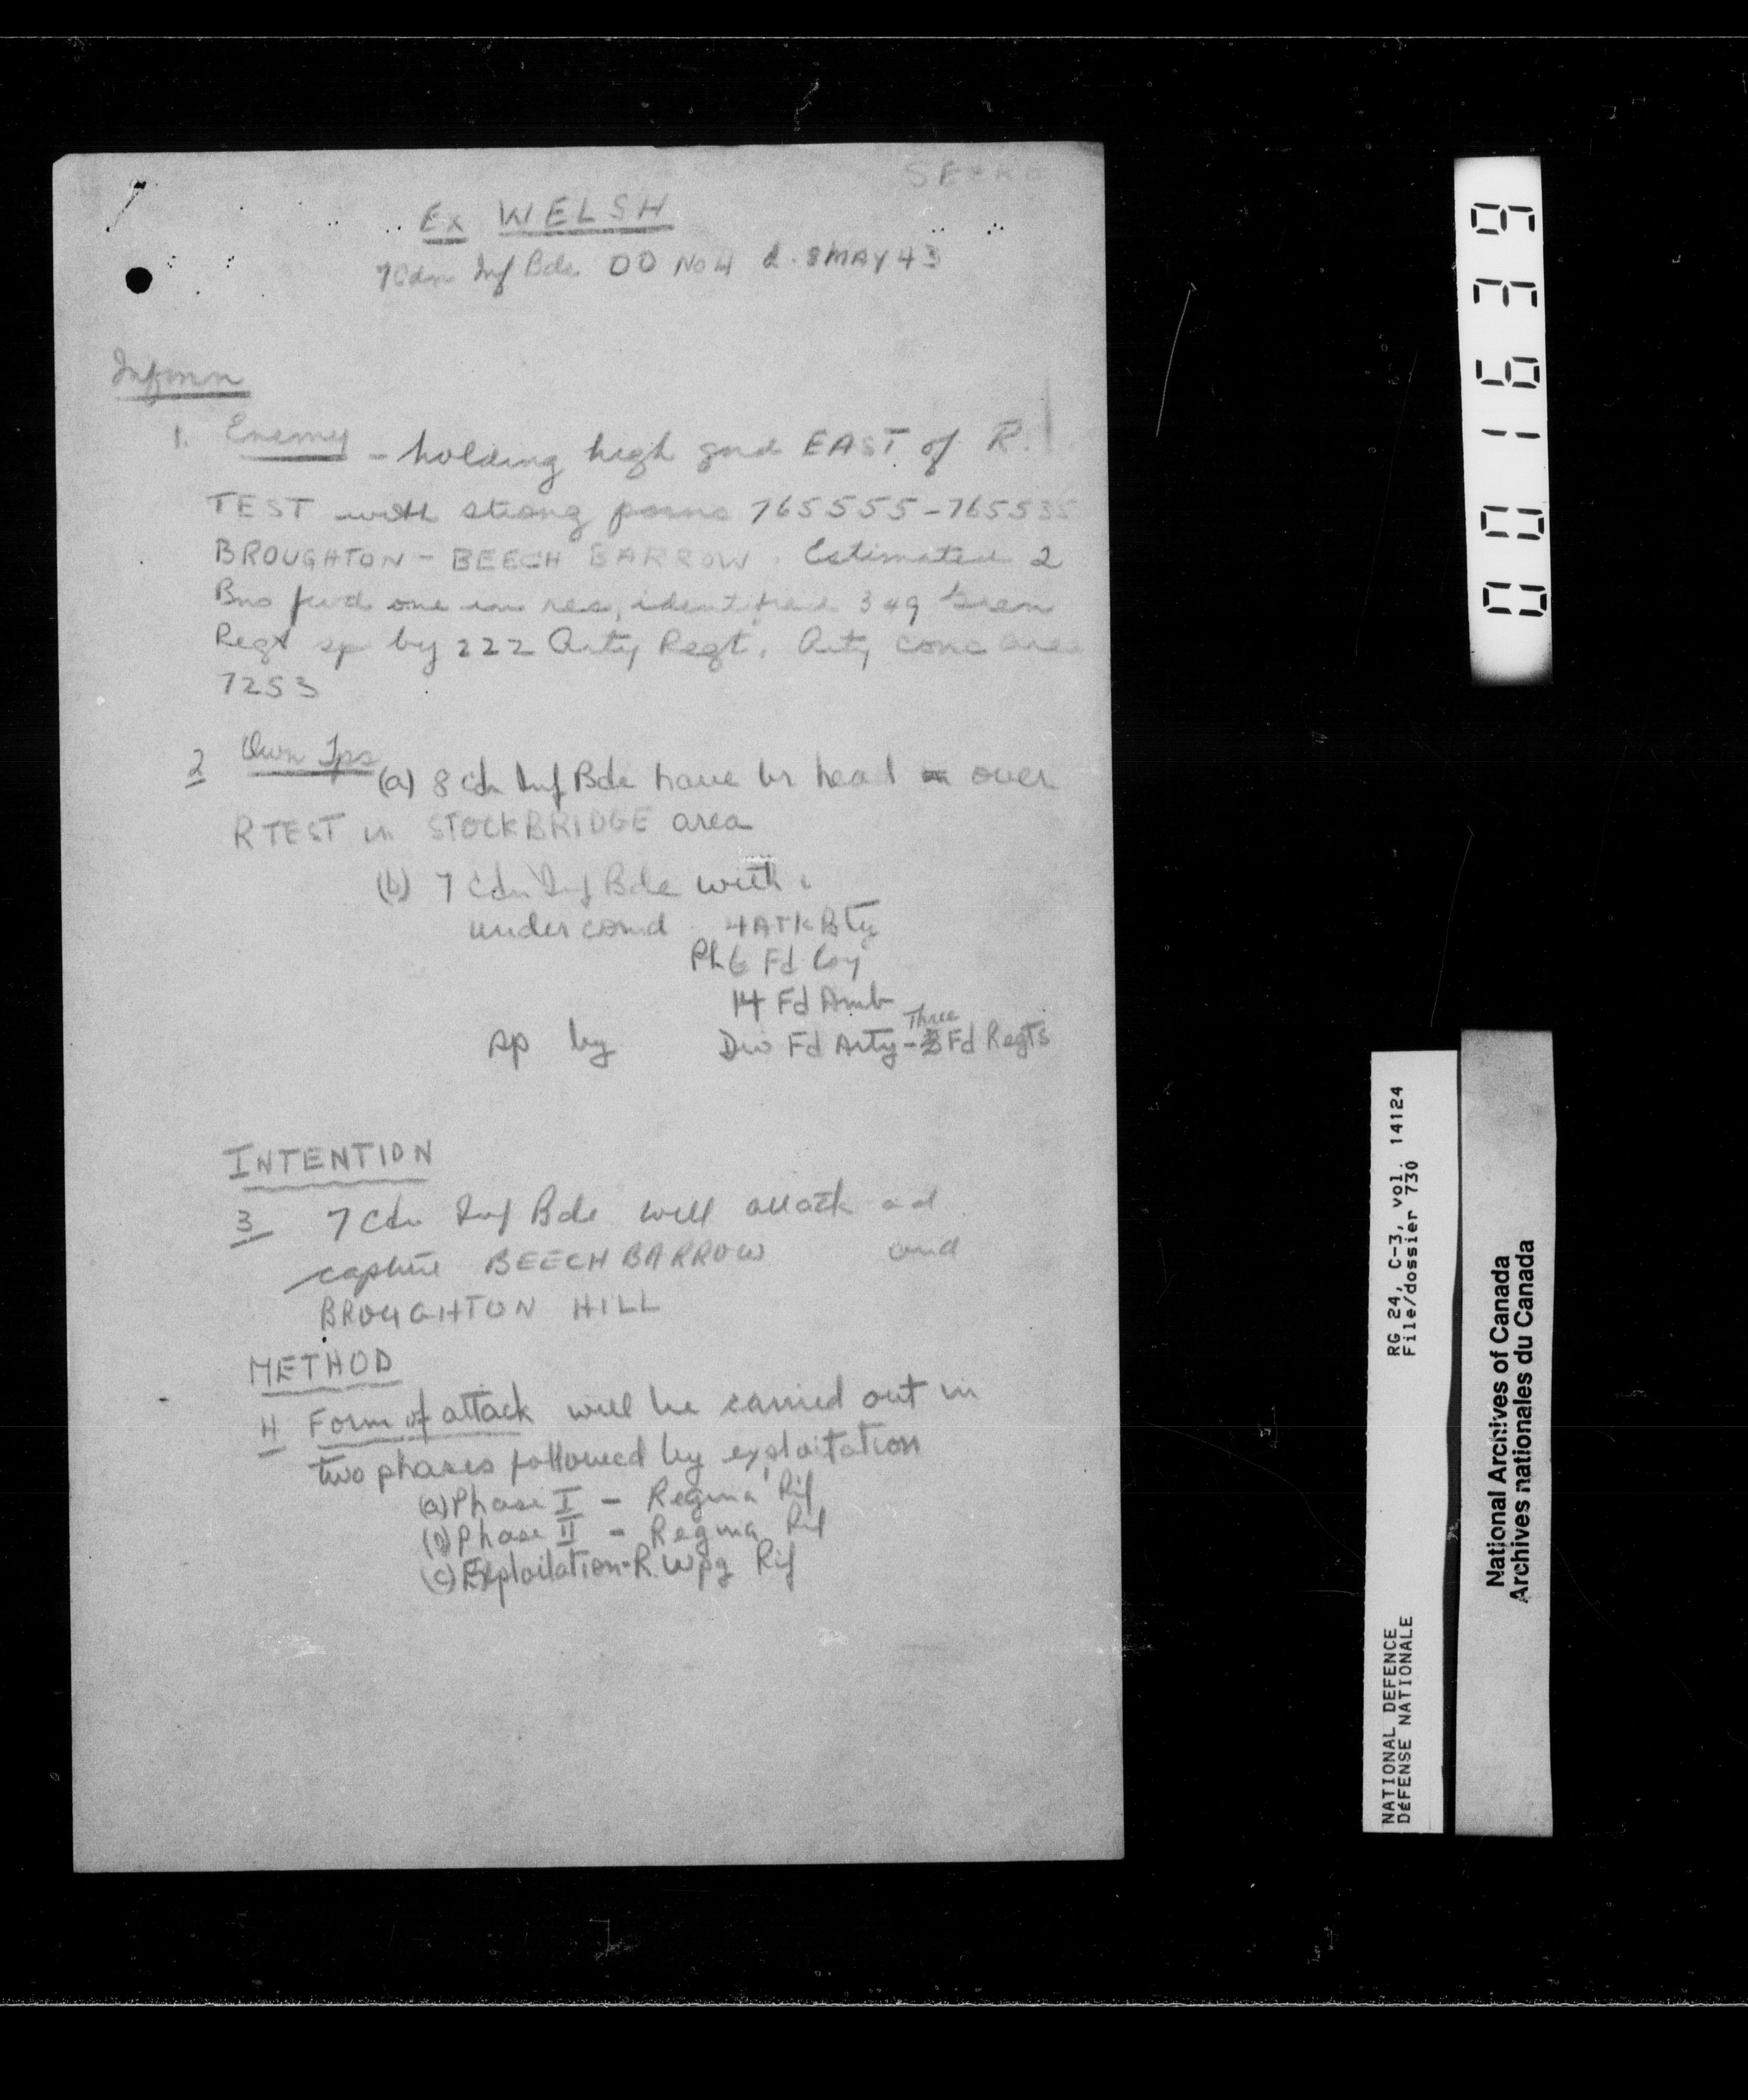 SECRE
Ex WELSH
7 Cdn Inf Bde OO No 4 d. 8 MAY 43
Infmn
1. Enemy - holding high gnd EAST of R.
TEST with strong posns 765555-765535
BROUGHTON - BEECH BARROW. Estimated 2
Bns fwd one in res, identified 349 Gren
Regt sp by 222 Arty Regt. Arty conc area
7253
2 Own Tps (a) 8 Cdn Inf Bde have br head over
R TEST in STOCKBRIDGE area
(b) 7 Cdn Inf Bde with
under comd 4 ATK Bty
Pl 6 Fd Coy
14 Fd Amb
Three
sp by Div Fd Arty - Fd Regts
INTENTION
3 7 Cdn Inf Bde will attack ad
capture BEECH BARROW and
BROUGHTON HILL
METHOD
4 Form of attack will be carried out in
two phases followed by exploitation
(a) Phase I - Regina Rif
(b) Phase II - Regina Rif
(c) Exploitation - R. Wpg Rif
001639
RG 24, C-3, vol. 14124
File/dossier 730
NATIONAL DEFENCE
DÉFENSE NATIONALE
National Archives of Canada
Archives nationales du Canada